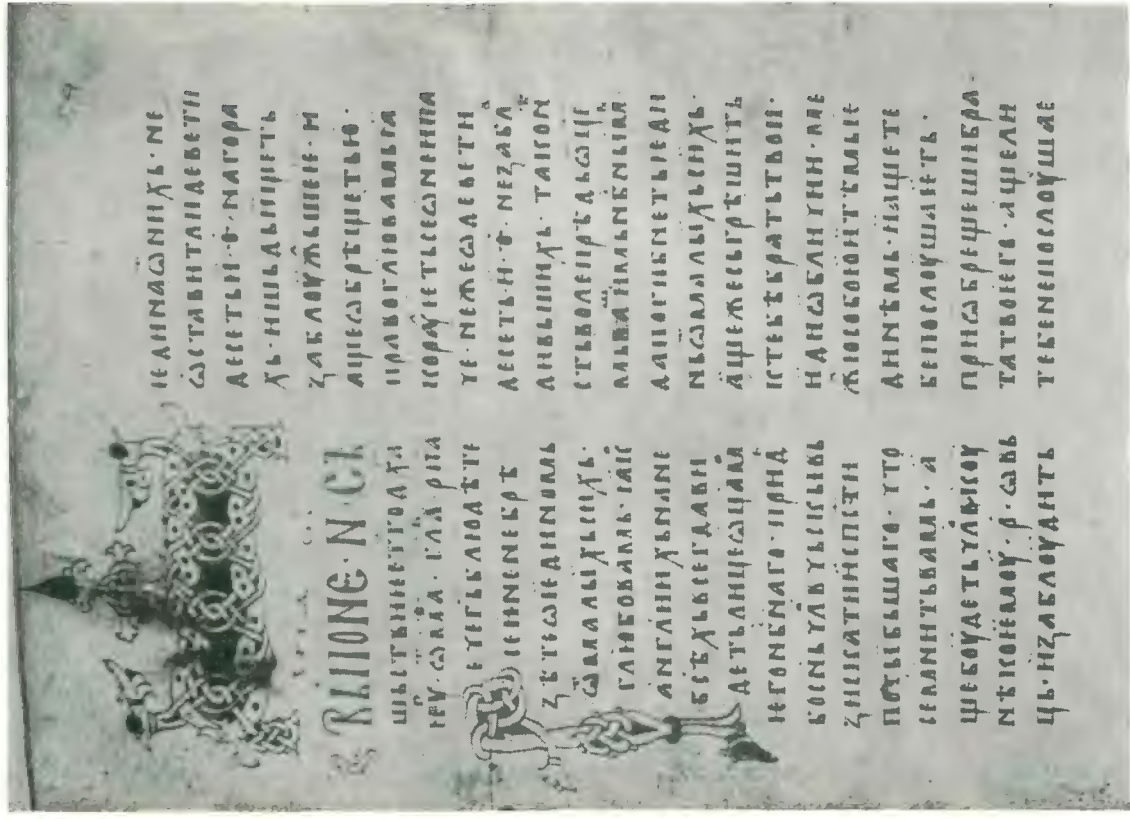 ВЪ ПОНЕ· Н СТ
ѥꙋ· ѿ маⷴ· глⷶ
ече гь блюдѣте
се и не небрѣ
зѣте ѡ ѥдиномь
ѿ малыхь сихь·
глю бо вамь· ꙗк
англи ихь на не
бсѣхь всегда ви
деть лице ѡца мо
ѥго нбснаго· приде
бо снь члвчьскы вь
зискати и спсти
погыбьшаго· что
се мнить вамь· а
ще боудеть члвкоу
нѣкоѥмоу· р· ѡвь
ць· и заблоудить
ѥдина ѿ нихь· не
ѡставить ли девети
десеть· и· ѳ· на гора
хь· и шьдь ищеть
заблоужьшеѥ· и
аще ѡбрѣщеть ю·
право глю вамь ꙗ
ко радуѥть се ѡ нѥи па
че· неже ѡ девети
десеть· и· ѳ· не забл
тако н
сть волѥ прѣдь ѡце
мь вашимь нбснымь
да погибнеть ѥди
нь ѿ малыхь сихь·
аще же сьгрѣшить
к тебѣ брать твои·
иди и ѡбличи и· ме
жю собою и тѣмь ѥ
динѣмь· и аще те
бе послоушаѥть·
приѡбрещеши бра
та твоѥго· аще ли
тебе не послоушае